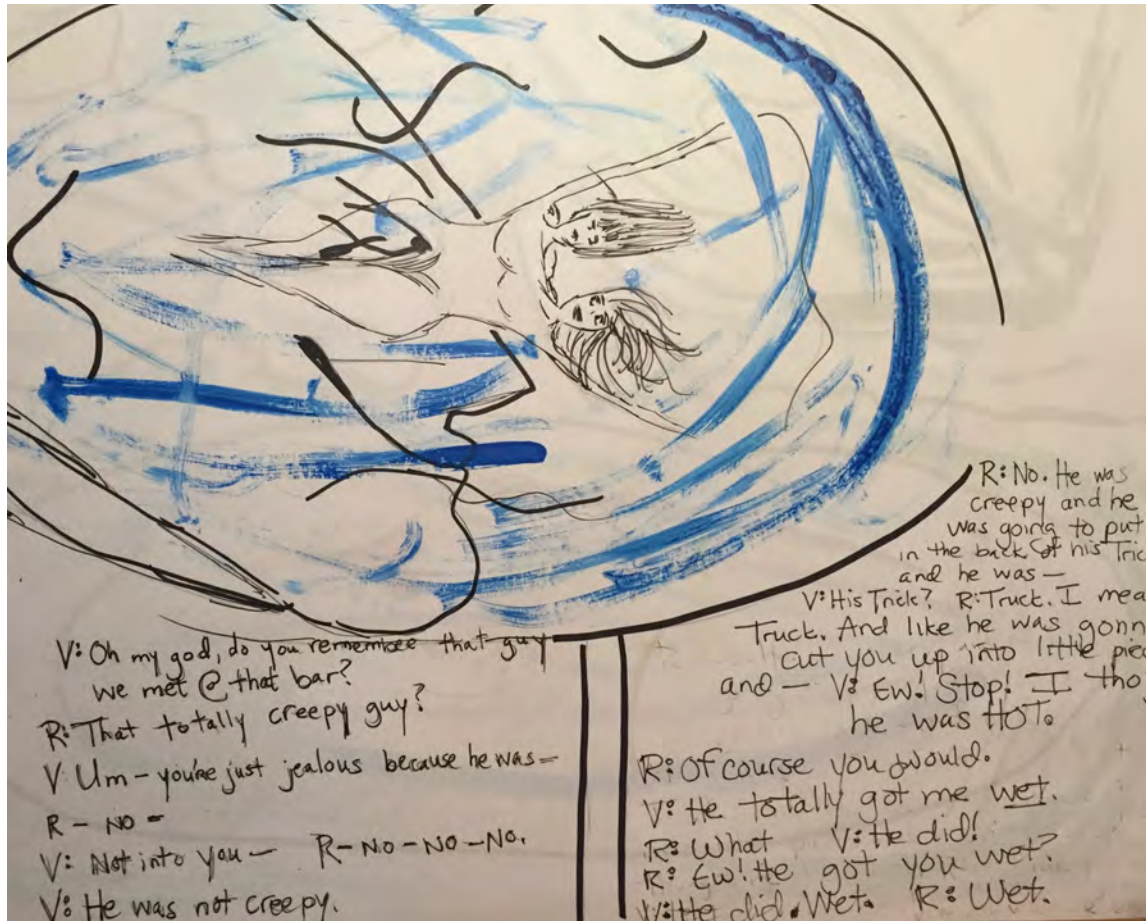 V: Oh my god, do you remember that guy
we met @ that bar?
R: That totally creepy guy?
V Um – you're just jealous because he was –
R – NO –
V: Not into you – R – NO – NO – NO.
V: He was not creepy.
R: No. He was
creepy and he
was going to put
in the back of his
and he was —
V: His Trick? R: Truck. I
Truck. And like he was
cut you up into little
and — V: Ew! Stop! I
he was HOT.
R: Of course you would.
V: He totally got me wet.
R: What V: He did!
R: Ew! He got you wet?
V: He did. Wet. R: Wet.